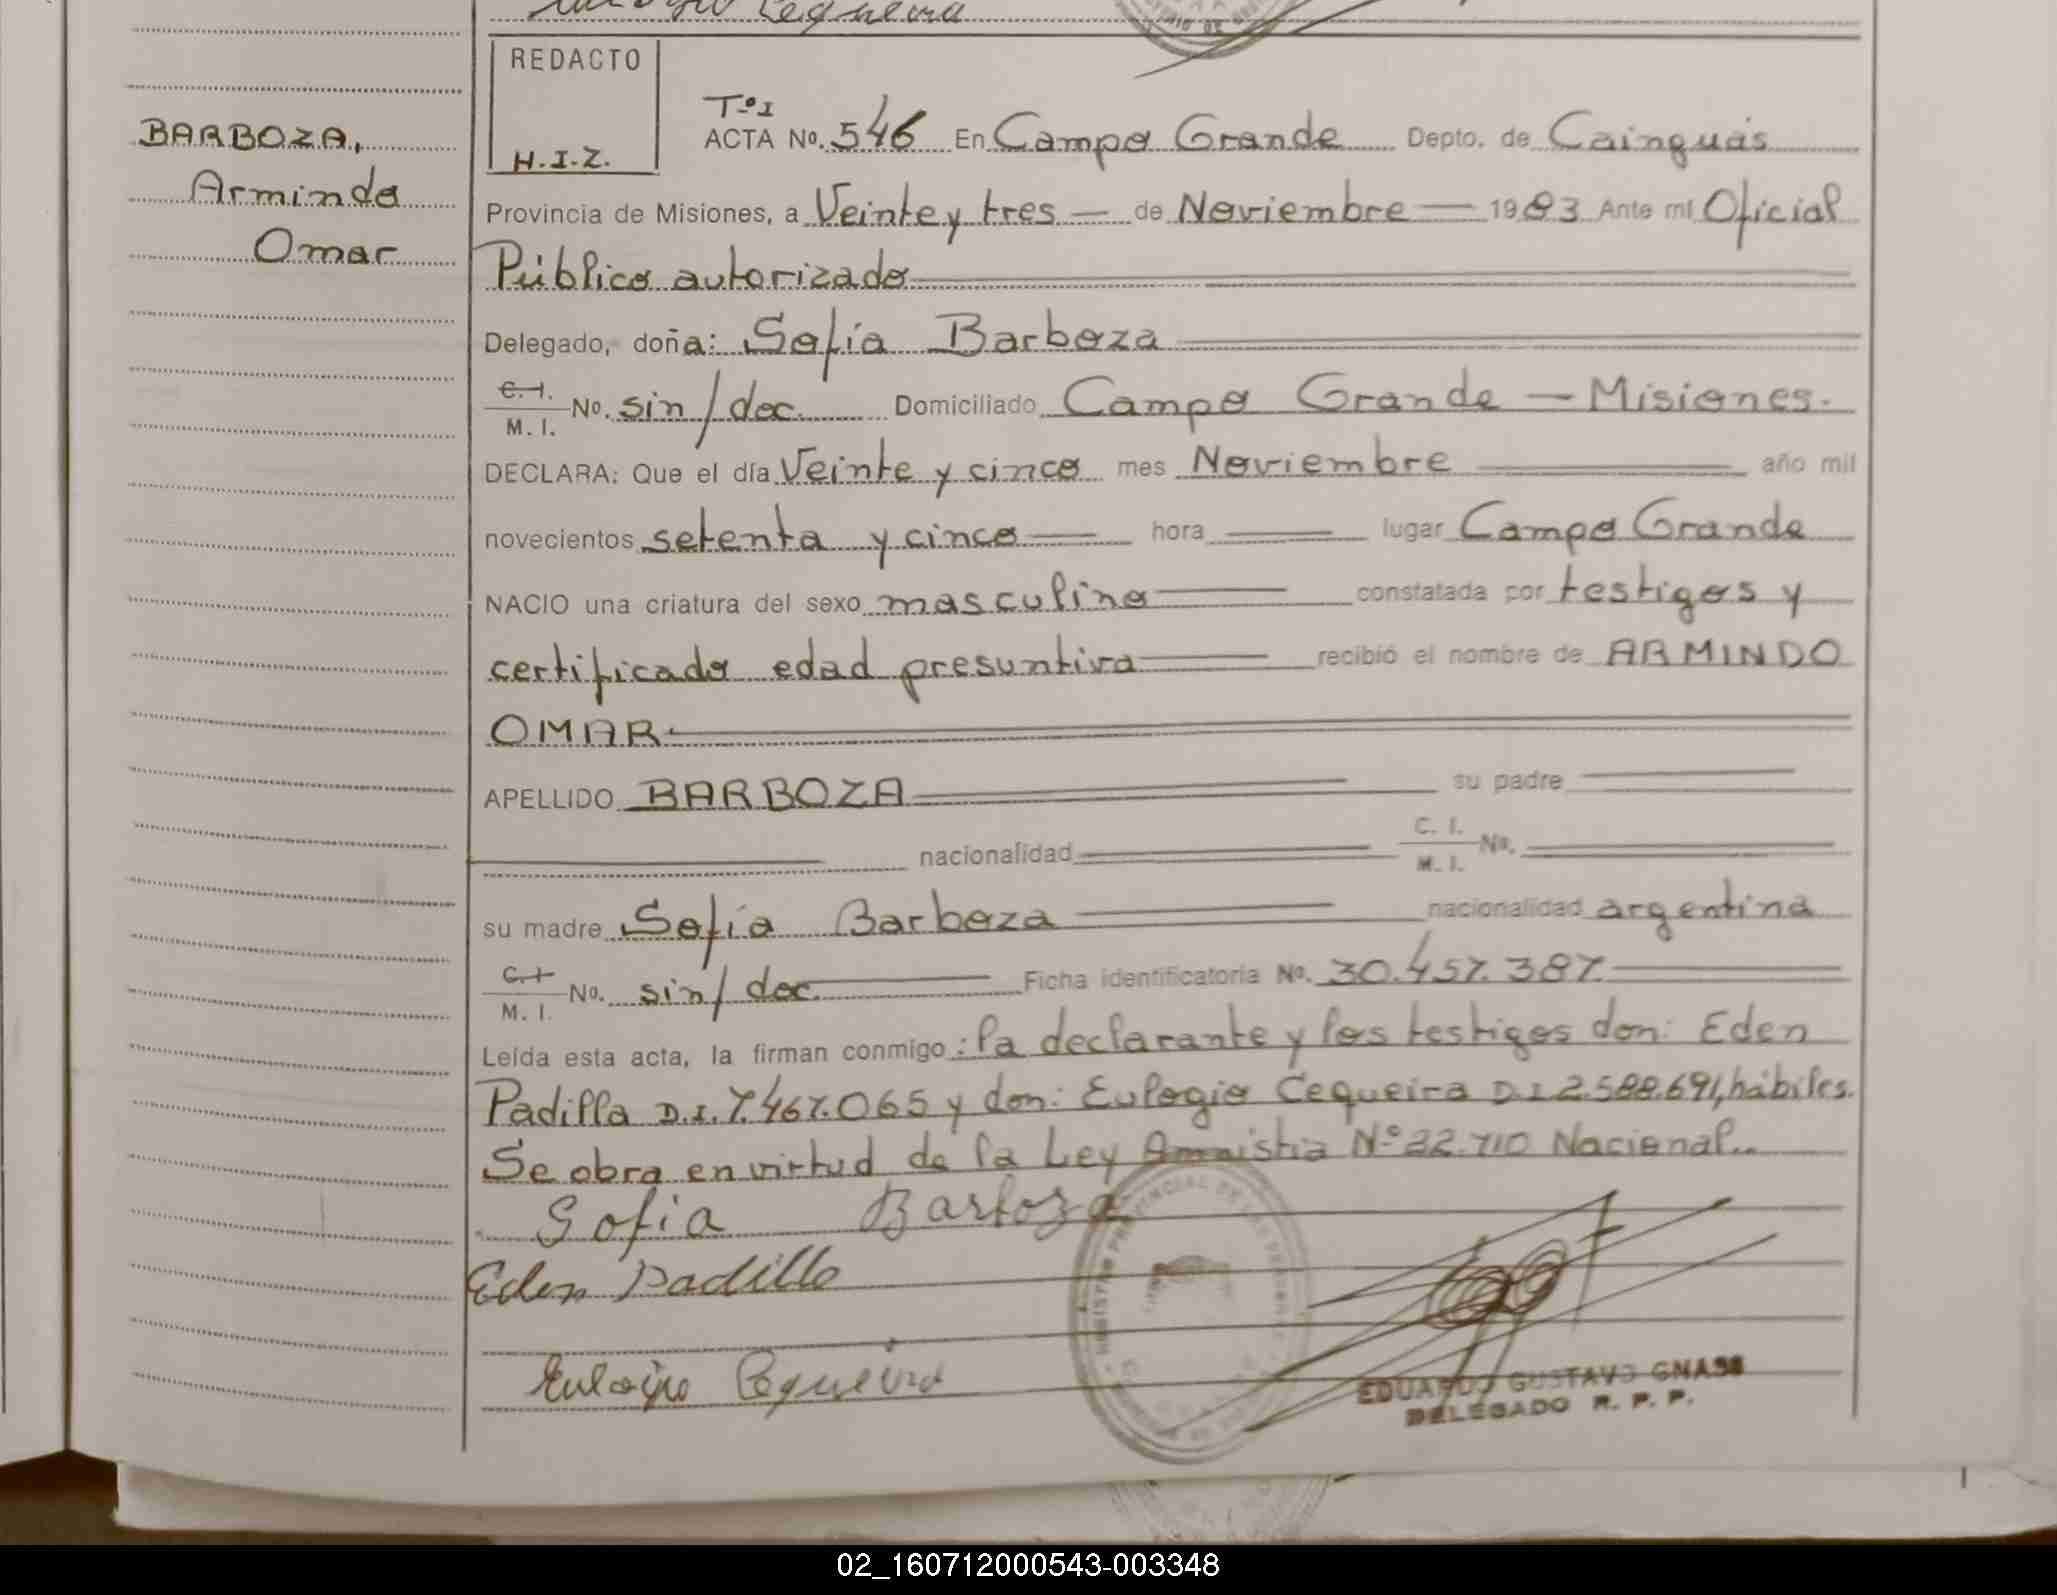 REDACTO
H.I.Z.
BARBOZA,
Armindo
Omar
Tº I
ACTA No. 546 En Campo Grande Depto. de Cainguás
Provincia de Misiones, a Veinte y tres — de Noviembre — 1983 Ante mí Oficial
Público autorizado
Delegado, doña: Sofía Barboza
C.I. M.I. No. sin/doc. Domiciliado Campo Grande — Misiones.
DECLARA: Que el día Veinte y cinco mes Noviembre año mil
novecientos setenta y cinco hora lugar Campo Grande
NACIO una criatura del sexo masculino constatada por testigos y
certificado edad presuntiva recibió el nombre de ARMINDO
OMAR
APELLIDO BARBOZA su padre
nacionalidad C.I. M.I. No.
su madre Sofía Barboza nacionalidad argentina
C.I. M.I. No. sin/doc. Ficha identificatoria No. 30.457.387
Leída esta acta, la firman conmigo: la declarante y los testigos don: Eden
Padilla D.I. 7.467.065 y don: Eulogio Cequeira D.I. 2.588.691, hábiles.
Se obra en virtud de la Ley Amnistia Nº 22.710 Nacional..
Sofia Barboza
Eden Padilla
Eulogio Cequeira
REGISTRO PROVINCIAL DE LAS PERSONAS
EDUARDO GUSTAVO GNASS
DELEGADO R. P. P.
02_160712000543-003348